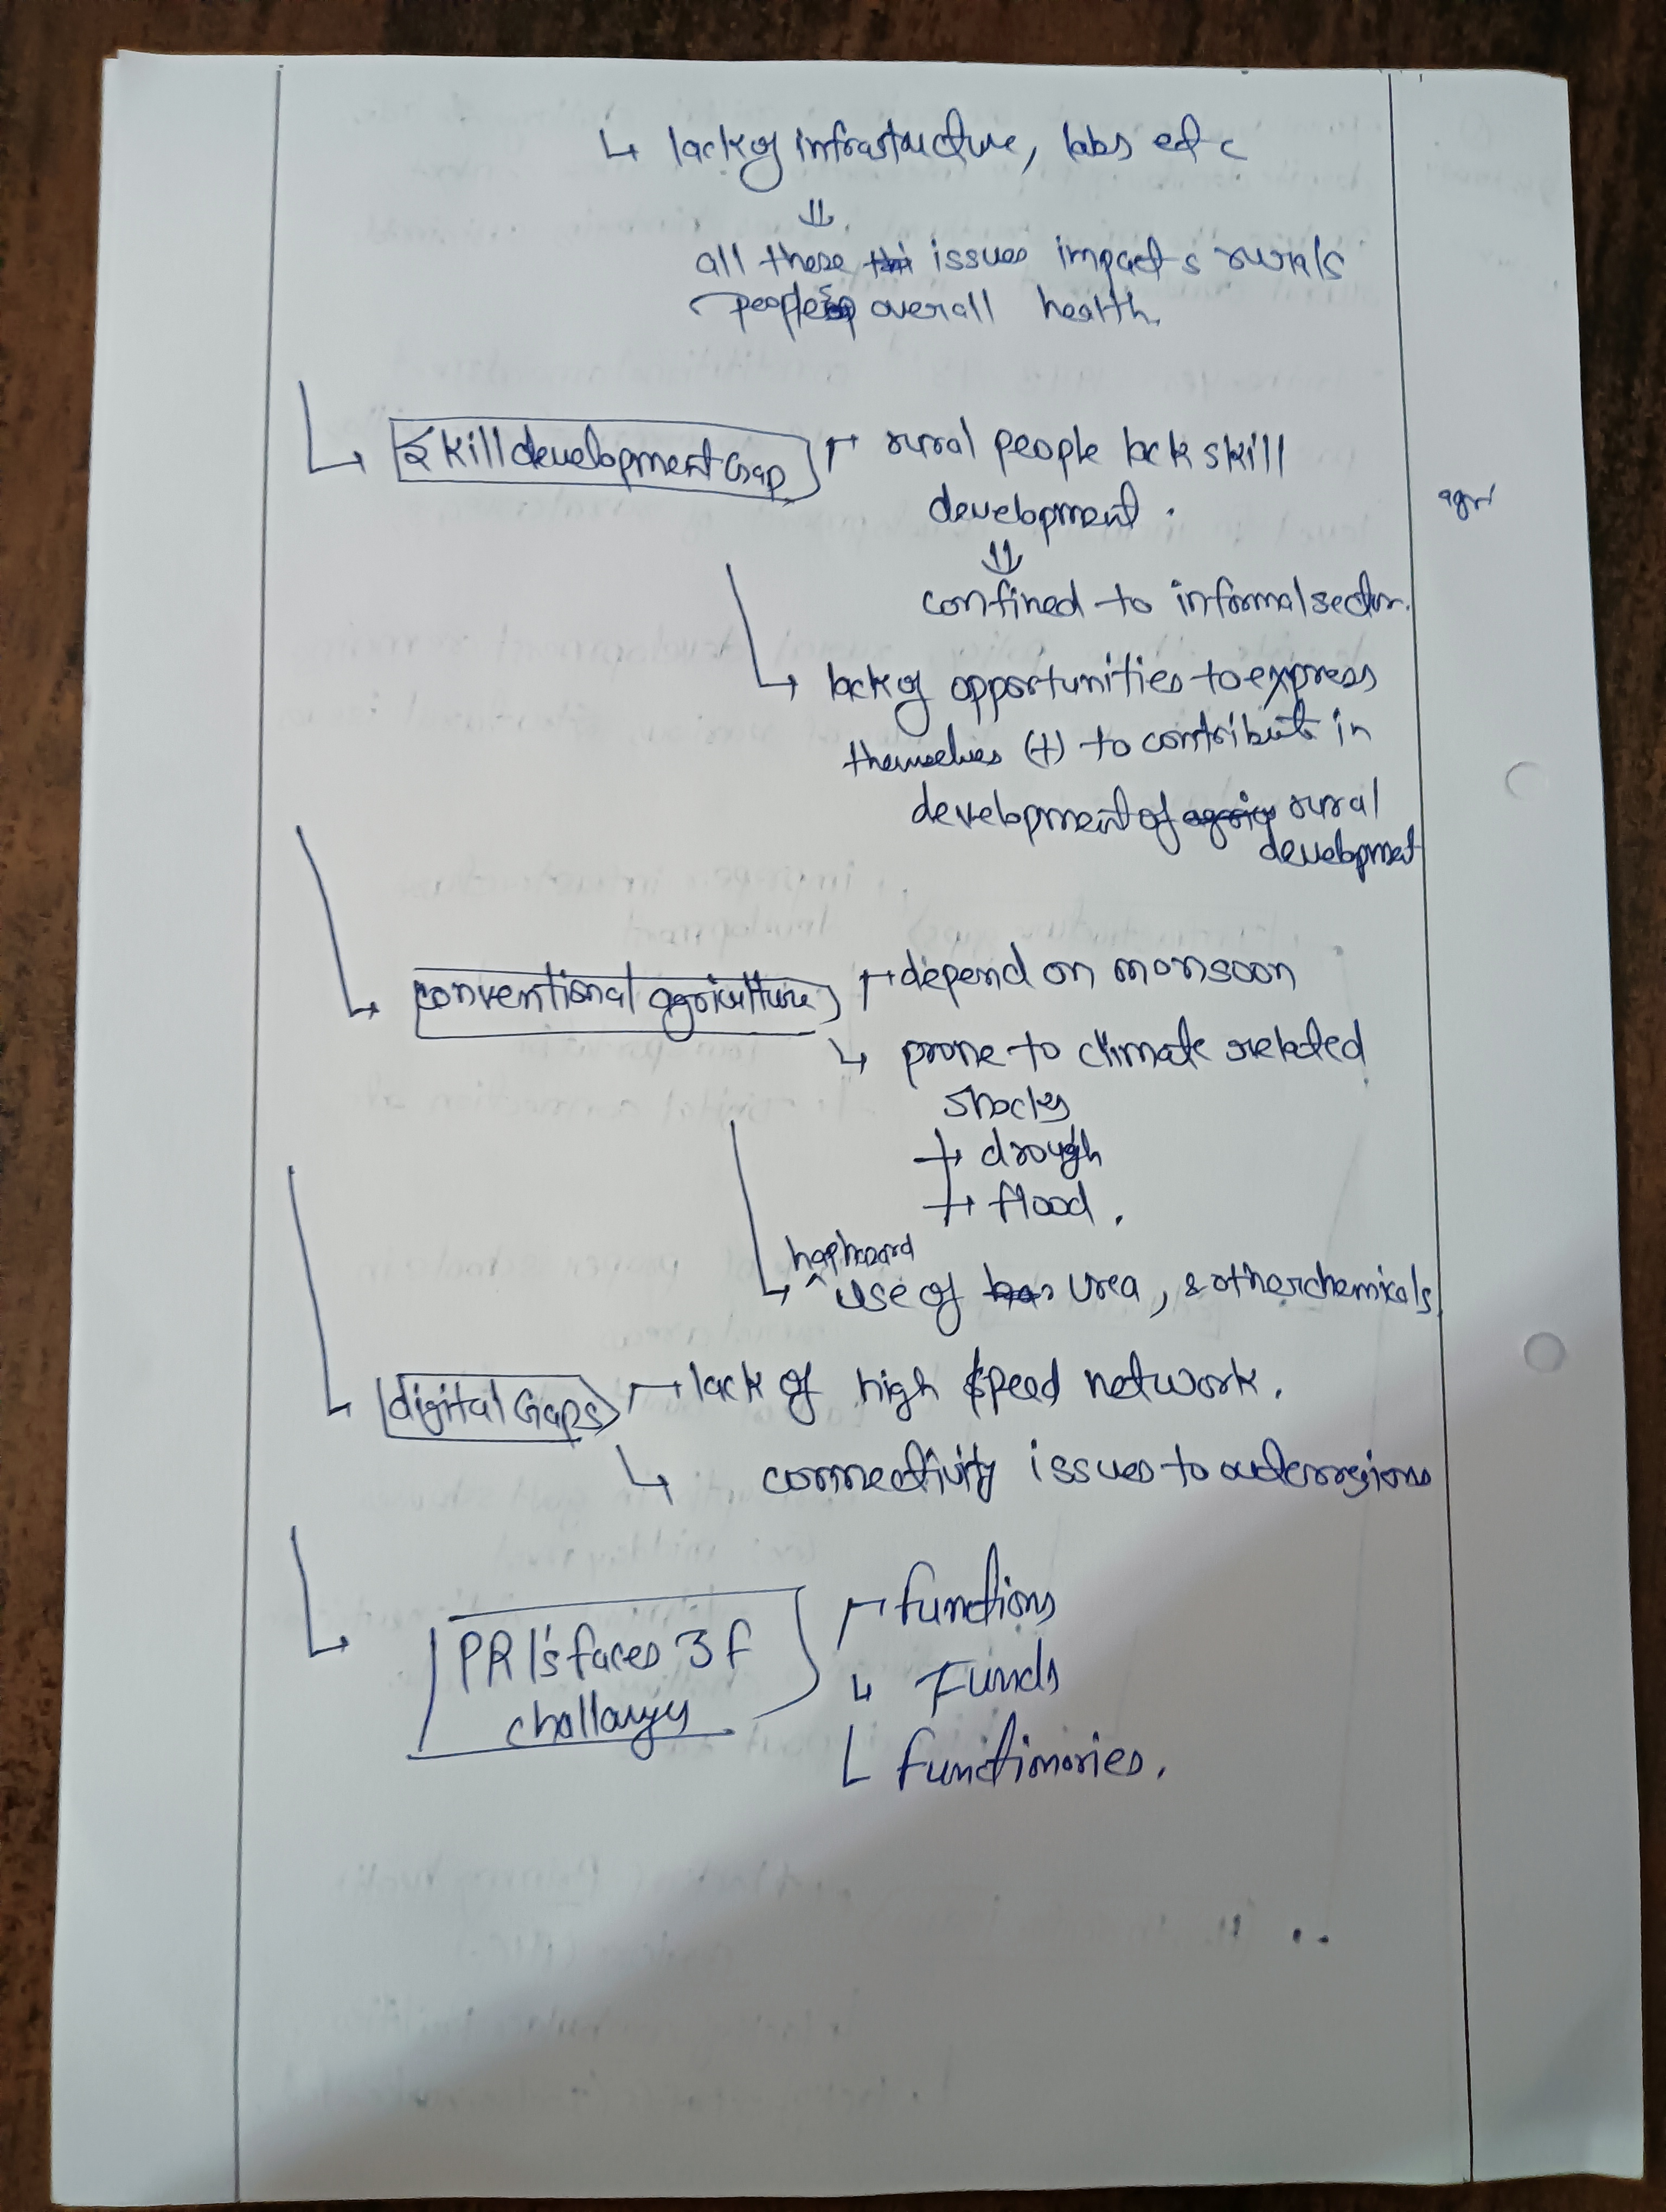 ↳ lack of infrastructure, labs etc
⇓
all these issues impacts rurals
people's overall health.
Skill development Gap → rural people lack skill
development.
agri
⇓
confined to informal sector.
→ lack of opportunities to express
themselves (+) to contribute in
development of rural
development
conventional agriculture → depend on monsoon
↳ prone to climate related
shocks
→ drough
→ flood.
haphazard
→ ^ use of urea, & other chemicals
digital Gaps → lack of high speed network.
↳ connectivity issues to outer regions
functions
PRI's faces 3F
challanges
↳ Funds
functionories.